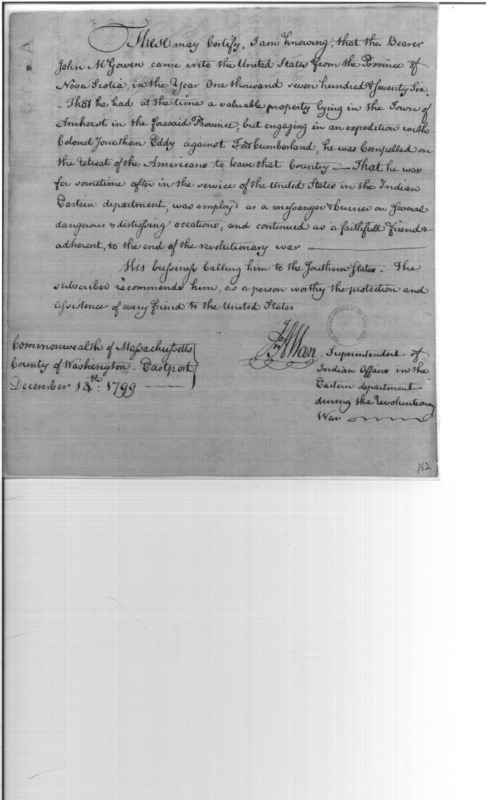 These may Certify, I am knowing, that the Bearer
John McGowen came into the United States from the Province of
Nova Scotia, in the Year One thousand seven hundred & Seventy Six.
- That he had at the time a valuable property lying in the Town of
Amherst in the foresaid Province, but engaging in an expedition with
Colonel Jonathan Eddy against Fort Cumberland, he was Compelled on
the retreat of the Americans to leave that Country — That he was
for sometime after in the service of the United States in the Indian
Eastern department, was employd as a messanger & currier on Several
dangerous & distressing occations, and continued as a faithfull friend &
adherent, to the end of the revolutionary war
His bussness Calling him to the Southern States. The
subscriber recommends him, as a person worthy the protection and
assistence of every friend to the United States
Commonwealth of Massachusetts
County of Washington. Eastport
December 14th: 1799
J Allan. Superintendent of
Indian Affairs in the
Eastern department
during the Revolutionary
War
162